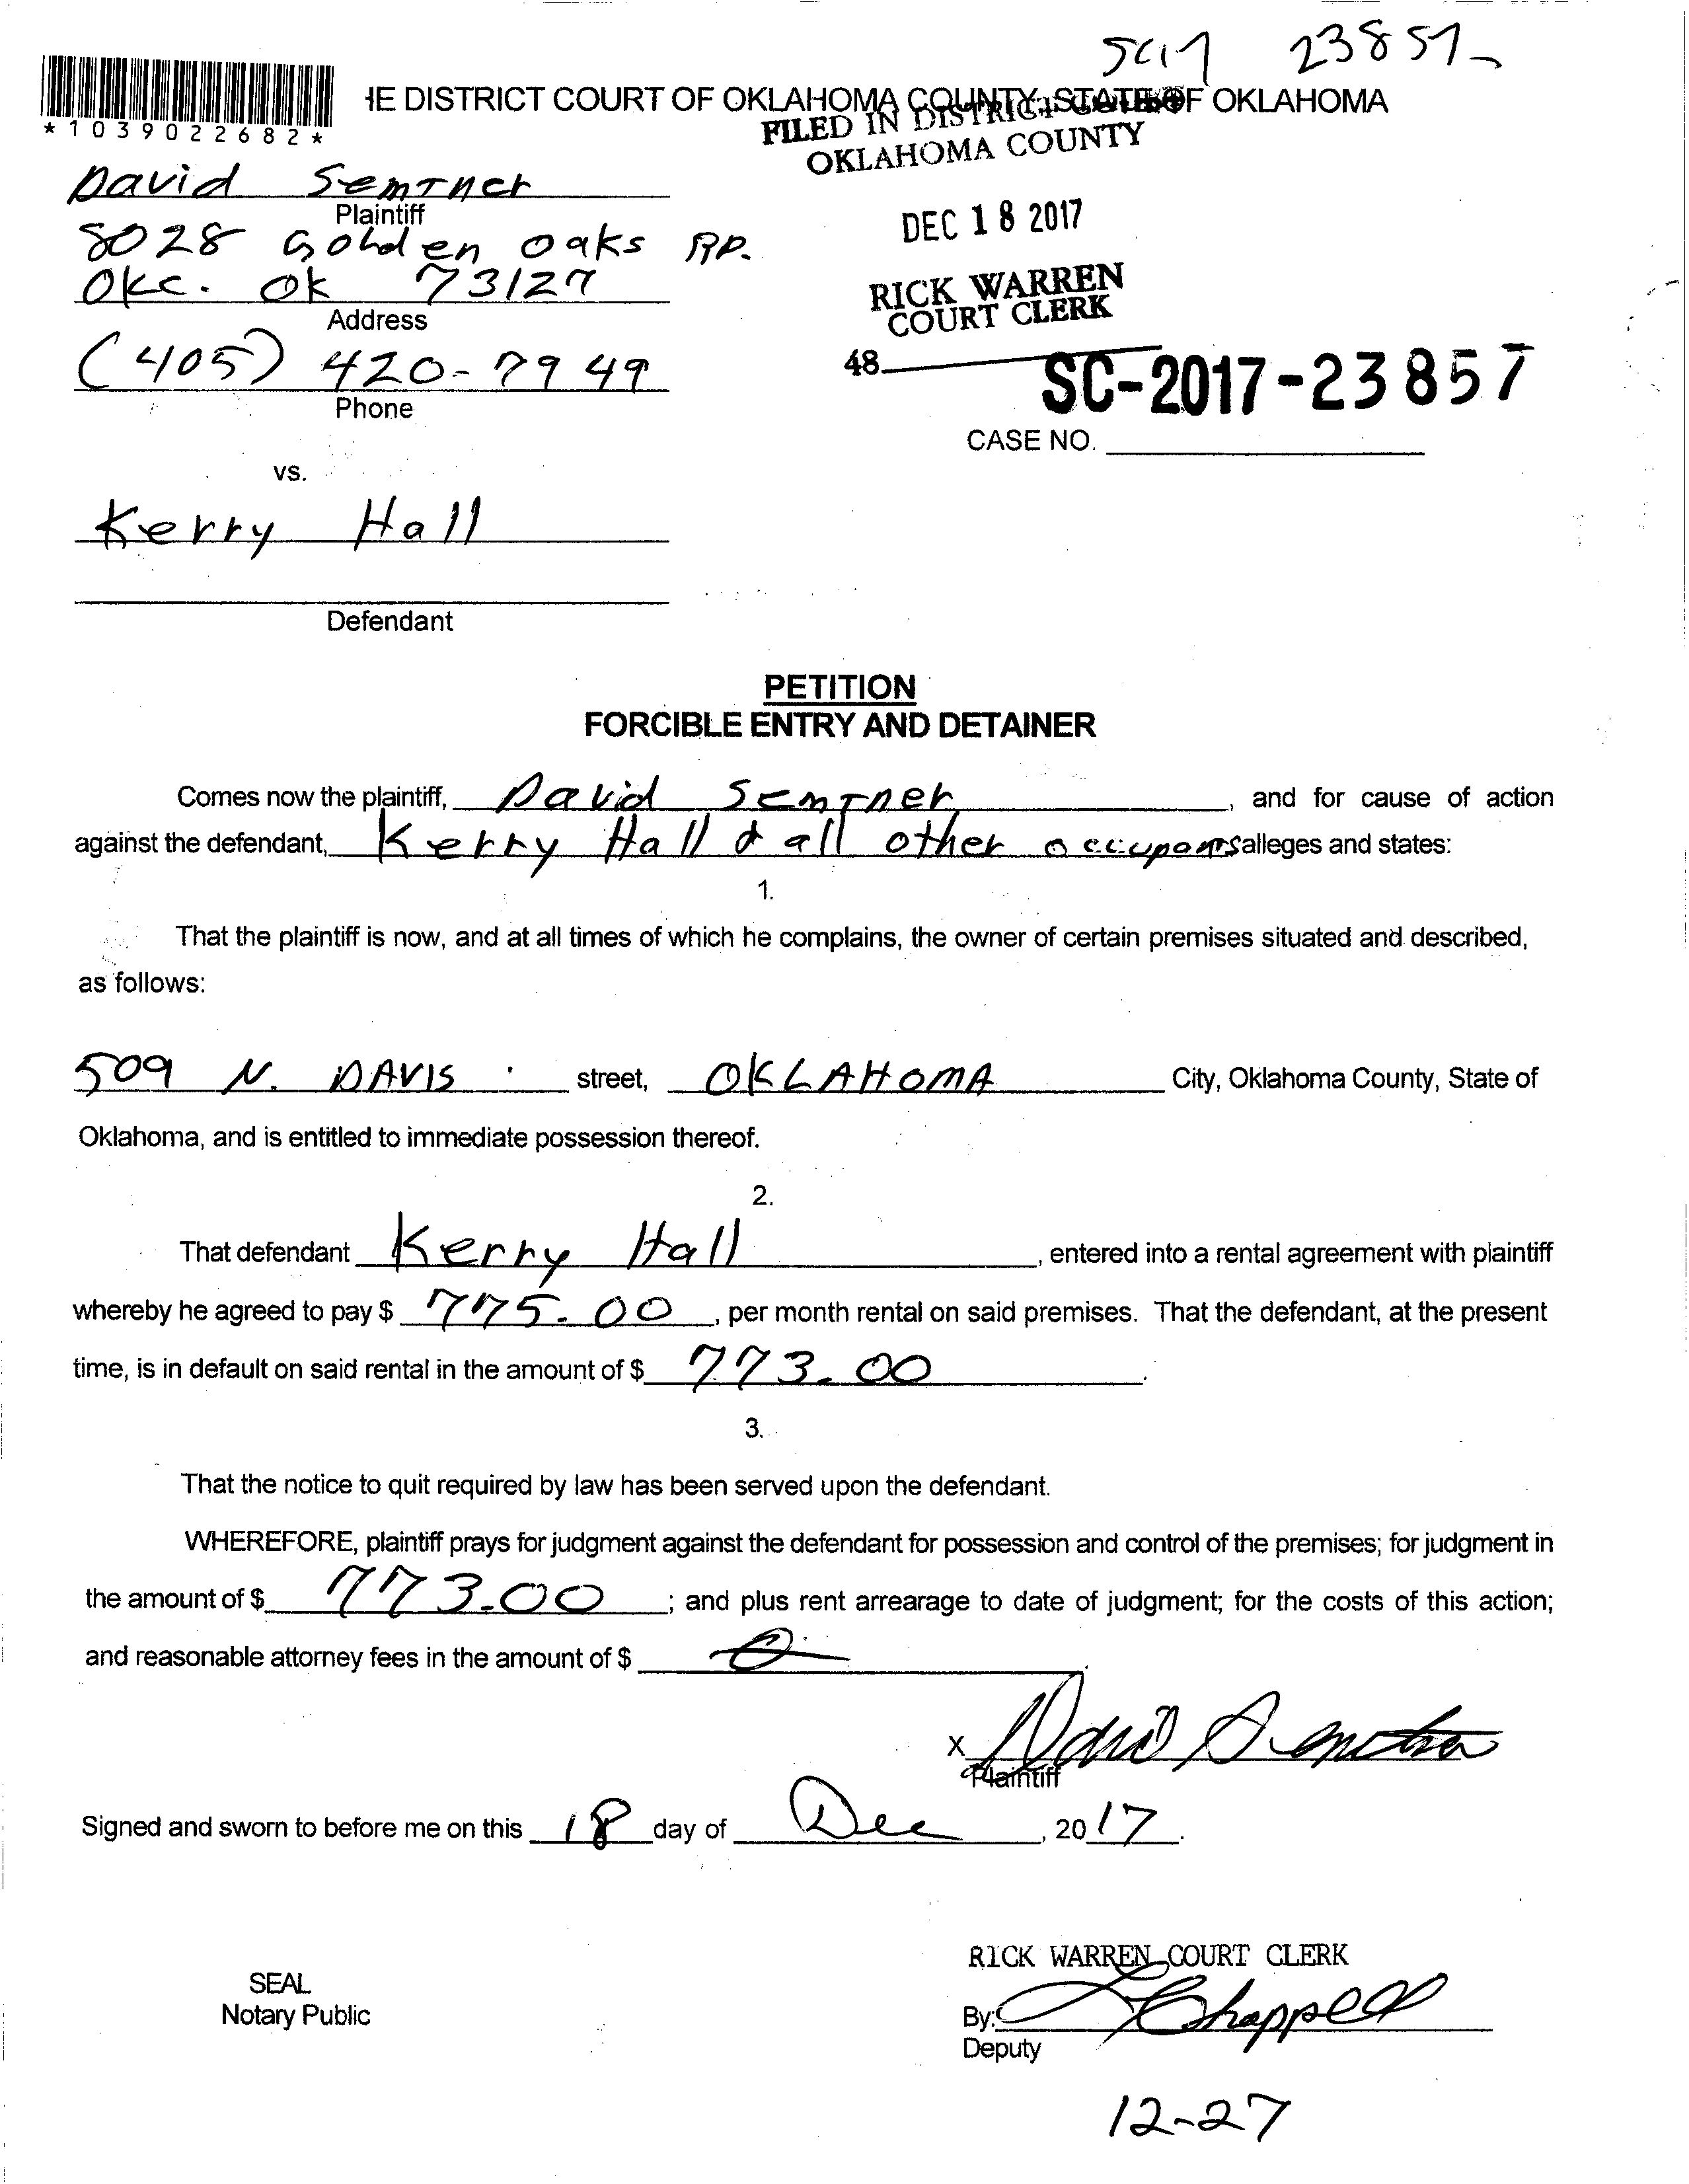 SC17 23857
HE DISTRICT COURT OF OKLAHOMA COUNTY, STATE OF OKLAHOMA
*1039022682*
FILED IN DISTRICT COURT
OKLAHOMA COUNTY
DEC 18 2017
RICK WARREN
COURT CLERK
48
SC-2017-23857
CASE NO.
David Semtner
Plaintiff
8028 Golden Oaks RD.
OKC. OK 73127
Address
(405) 420-7949
Phone
vs.
Kerry Hall
Defendant
PETITION
FORCIBLE ENTRY AND DETAINER
Comes now the plaintiff, David Semtner, and for cause of action
against the defendant, Kerry Hall & all other occupants alleges and states:
1.
That the plaintiff is now, and at all times of which he complains, the owner of certain premises situated and described,
as follows:
509 N. DAVIS street, OKLAHOMA City, Oklahoma County, State of
Oklahoma, and is entitled to immediate possession thereof.
2.
That defendant Kerry Hall, entered into a rental agreement with plaintiff
whereby he agreed to pay $ 775.00, per month rental on said premises. That the defendant, at the present
time, is in default on said rental in the amount of $ 773.00.
3.
That the notice to quit required by law has been served upon the defendant.
WHEREFORE, plaintiff prays for judgment against the defendant for possession and control of the premises; for judgment in
the amount of $ 773.00; and plus rent arrearage to date of judgment; for the costs of this action;
and reasonable attorney fees in the amount of $ 0
X David Semtner
Plaintiff
Signed and sworn to before me on this 18 day of Dec, 2017.
RICK WARREN COURT CLERK
SEAL
Notary Public
By: Chappell
Deputy
12-27